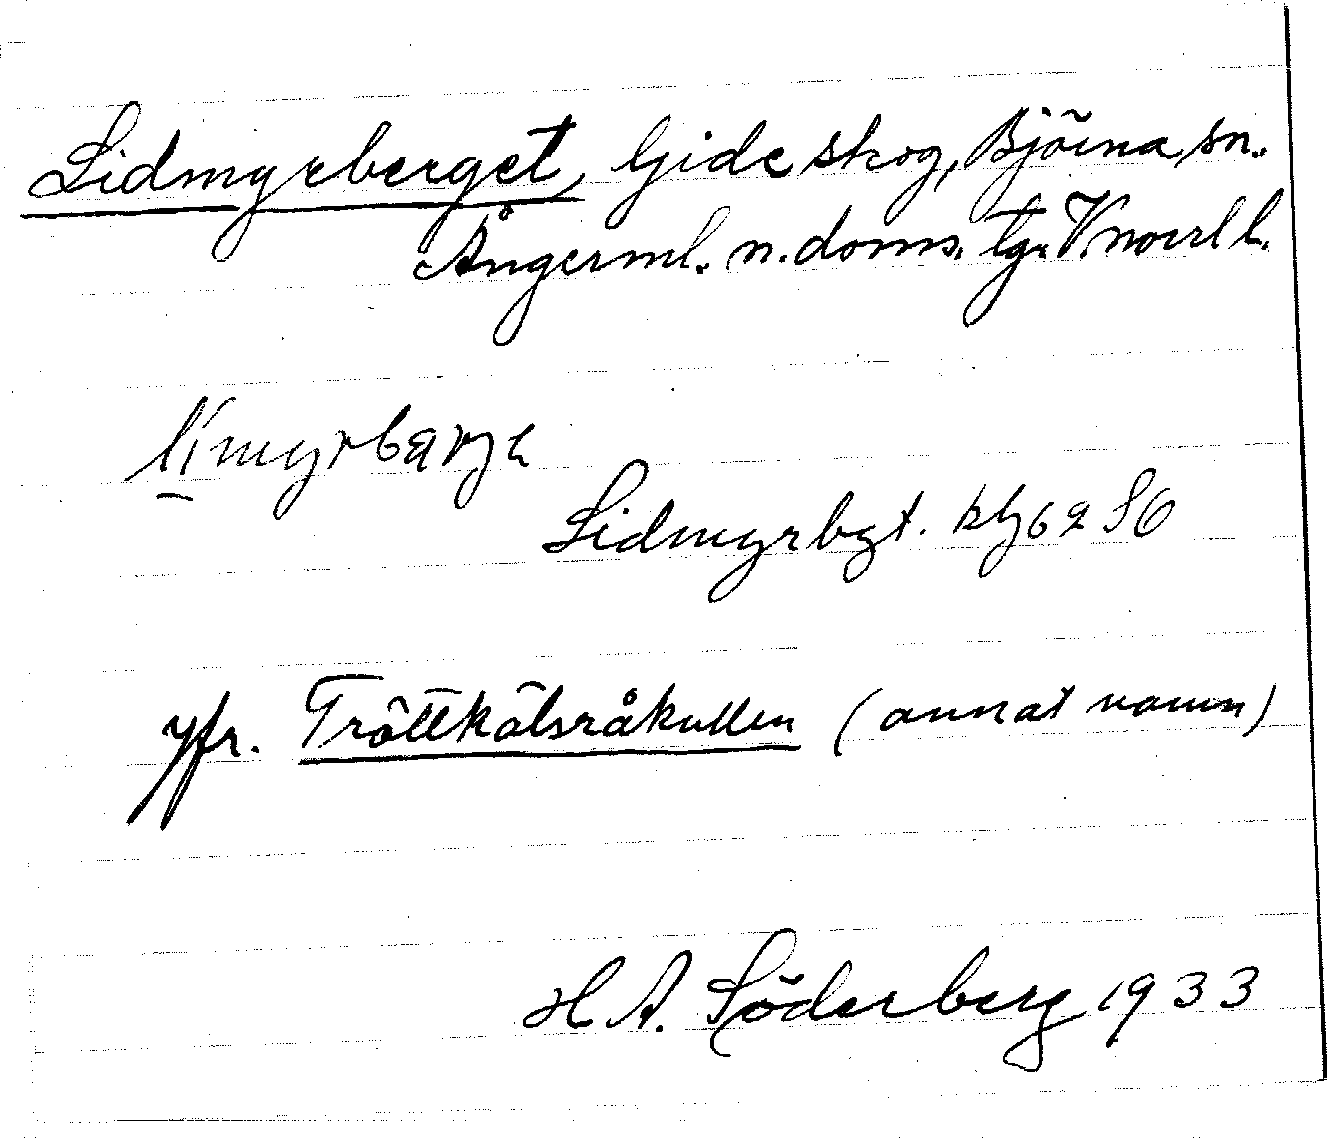 Lidmyrberget, Gideskog, Björna sn.
Ångerml. n. doms. tg. Vnorrl l.
līmyrbärje
Lidmyrbgt. kbl 62 SO
jfr. Tröttkälsråkullen (annat namn)
H A. Söderberg 1933